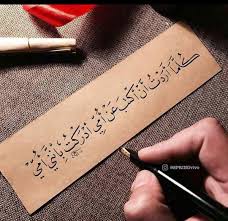 كلما أردت أن أكتب عن أمي أدركت بأنني أمي